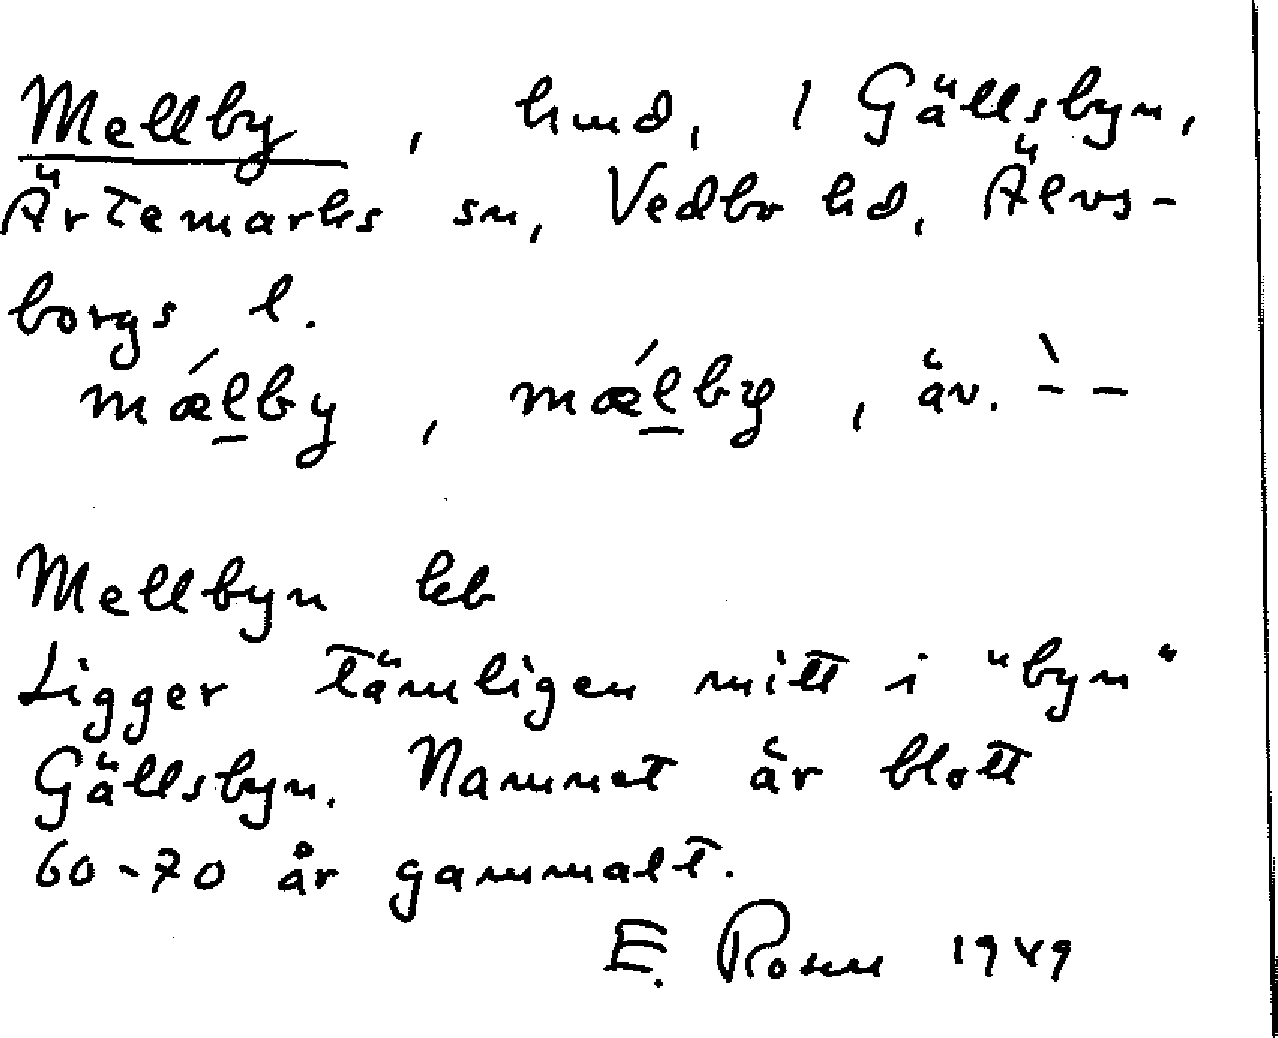 Mellby, hmd, 1 Gällsbyn,
Ärtemarks sn, Vedbo hd, Älvs-
borgs l.
mǽlby, mǽlby, äv. `- -
Mellbyn kb
Ligger tämligen mitt i "byn"
Gällsbyn. Namnet är blott
60-70 år gammalt.
E. Rosen 1949